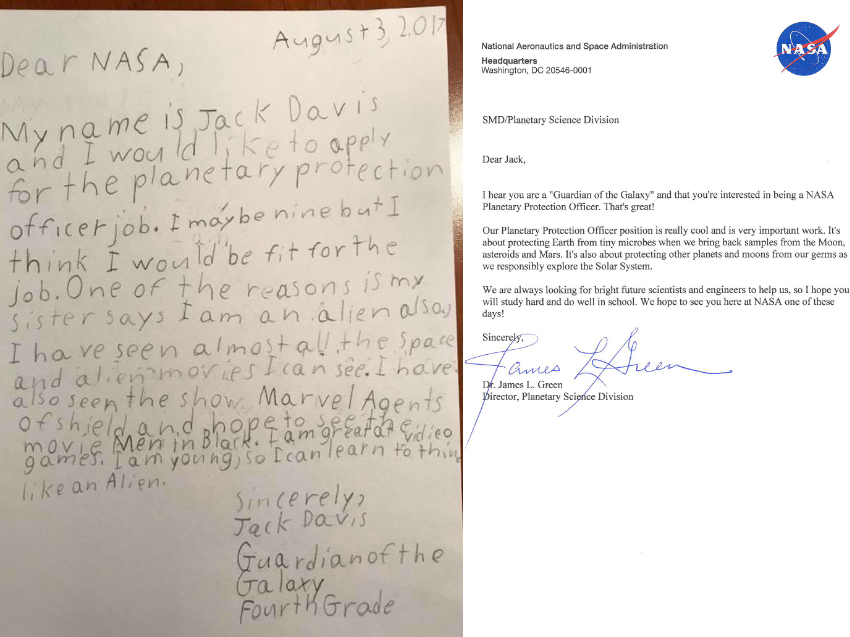 August 3, 2017
Dear NASA,
My name is Jack Davis
and I would like to apply
for the planetary protection
officer job. I may be nine but I
think I would be fit for the
job. One of the reasons is my
sister says I am an alien also,
I have seen almost all the space
and alien movies I can see. I have
also seen the show Marvel Agents
of shield and hope to see the
movie Men in Black. I am great at vidieo
games. I am young, so I can learn to think
like an Alien.
Sincerely,
Jack Davis
Guardian of the
Galaxy
Fourth Grade
National Aeronautics and Space Administration
Headquarters
Washington, DC 20546-0001
NASA
SMD/Planetary Science Division
Dear Jack,
I hear you are a "Guardian of the Galaxy" and that you're interested in being a NASA
Planetary Protection Officer. That's great!
Our Planetary Protection Officer position is really cool and is very important work. It's
about protecting Earth from tiny microbes when we bring back samples from the Moon,
asteroids and Mars. It's also about protecting other planets and moons from our germs as
we responsibly explore the Solar System.
We are always looking for bright future scientists and engineers to help us, so I hope you
will study hard and do well in school. We hope to see you here at NASA one of these
days!
Sincerely,
James L Green
Dr. James L. Green
Director, Planetary Science Division